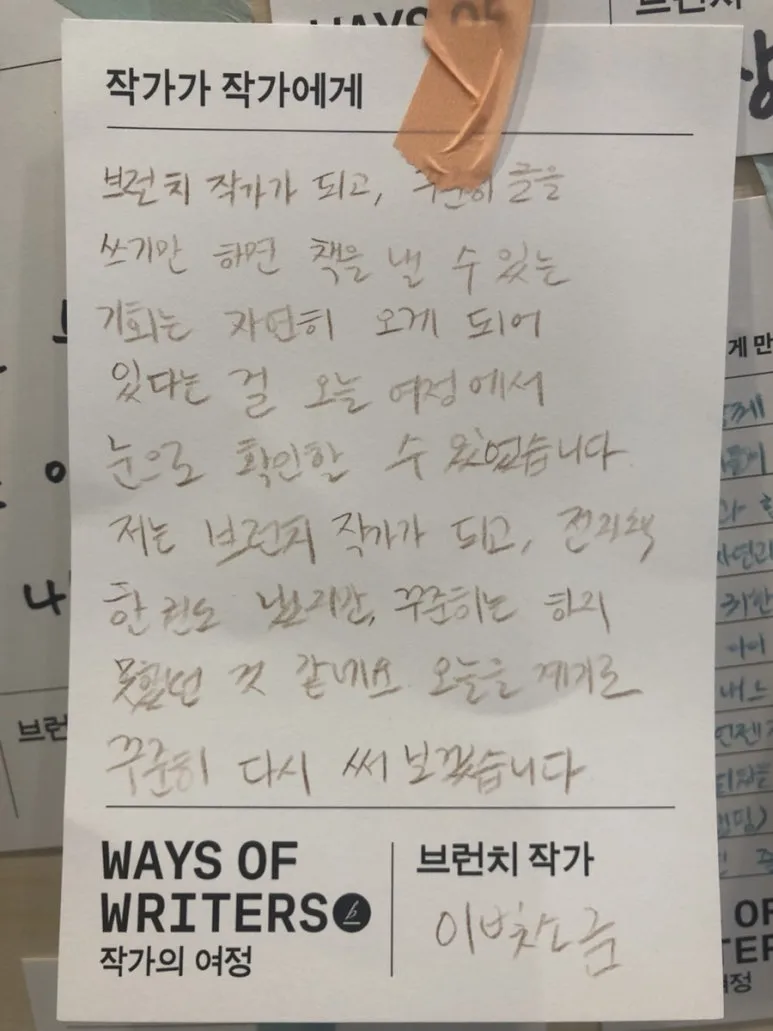 WAYS OF
브런치
작가가 작가에게
브런치 작가가 되고, 꾸준히 글을
쓰기만 하면 책을 낼 수 있는
기회는 자연히 오게 되어
있다는 걸 오늘 여정에서
눈으로 확인할 수 있었습니다.
저는 브런치 작가가 되고, 전자책
한 권도 냈지만, 꾸준히는 하지
못했던 것 같네요. 오늘을 계기로
꾸준히 다시 써 보겠습니다
WAYS OF
WRITERS
작가의 여정
브런치 작가